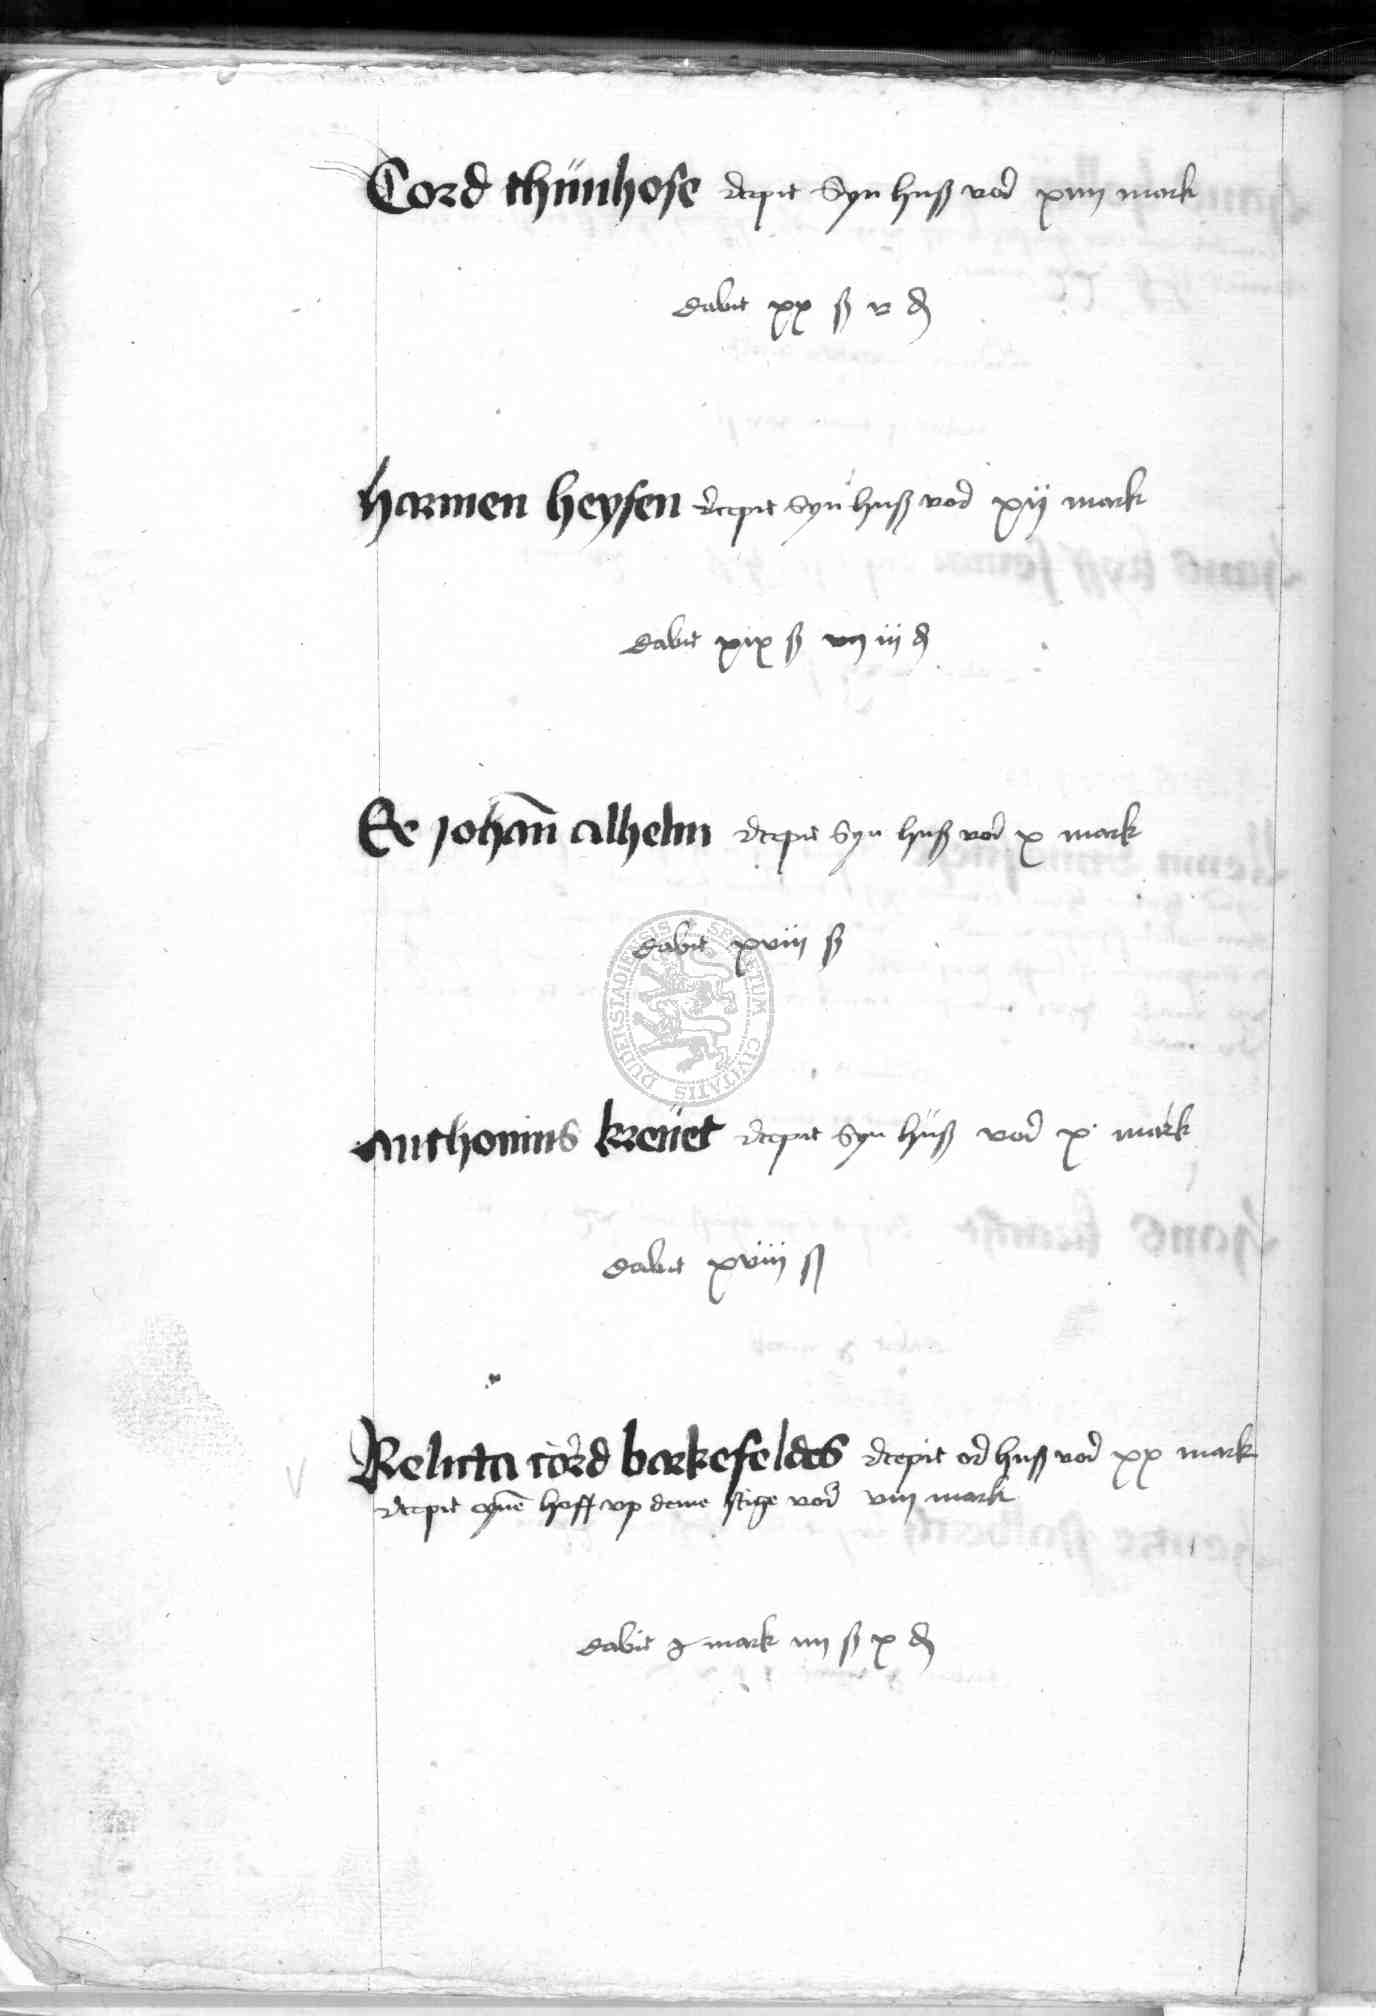 Cord thünhose recepit syn huß vor xiiij mark
dabit xx ß v d
harmen heysen recepit syn huß vor xij mark
dabit xix ß iij d
Er johan alhelm recepit syn huß vor x mark
dabit xviij ß
SECRETUM CIVITATIS DUDERSTADIENSIS
Anthonius kreuet recepit syn hüß vor x mark
dabit xviij ß
Relicta cord barkefeldes recepit or huß vor xx mark
recepit eynen hoff vp deme stige vor viij mark
dabit j mark iiij ß x d